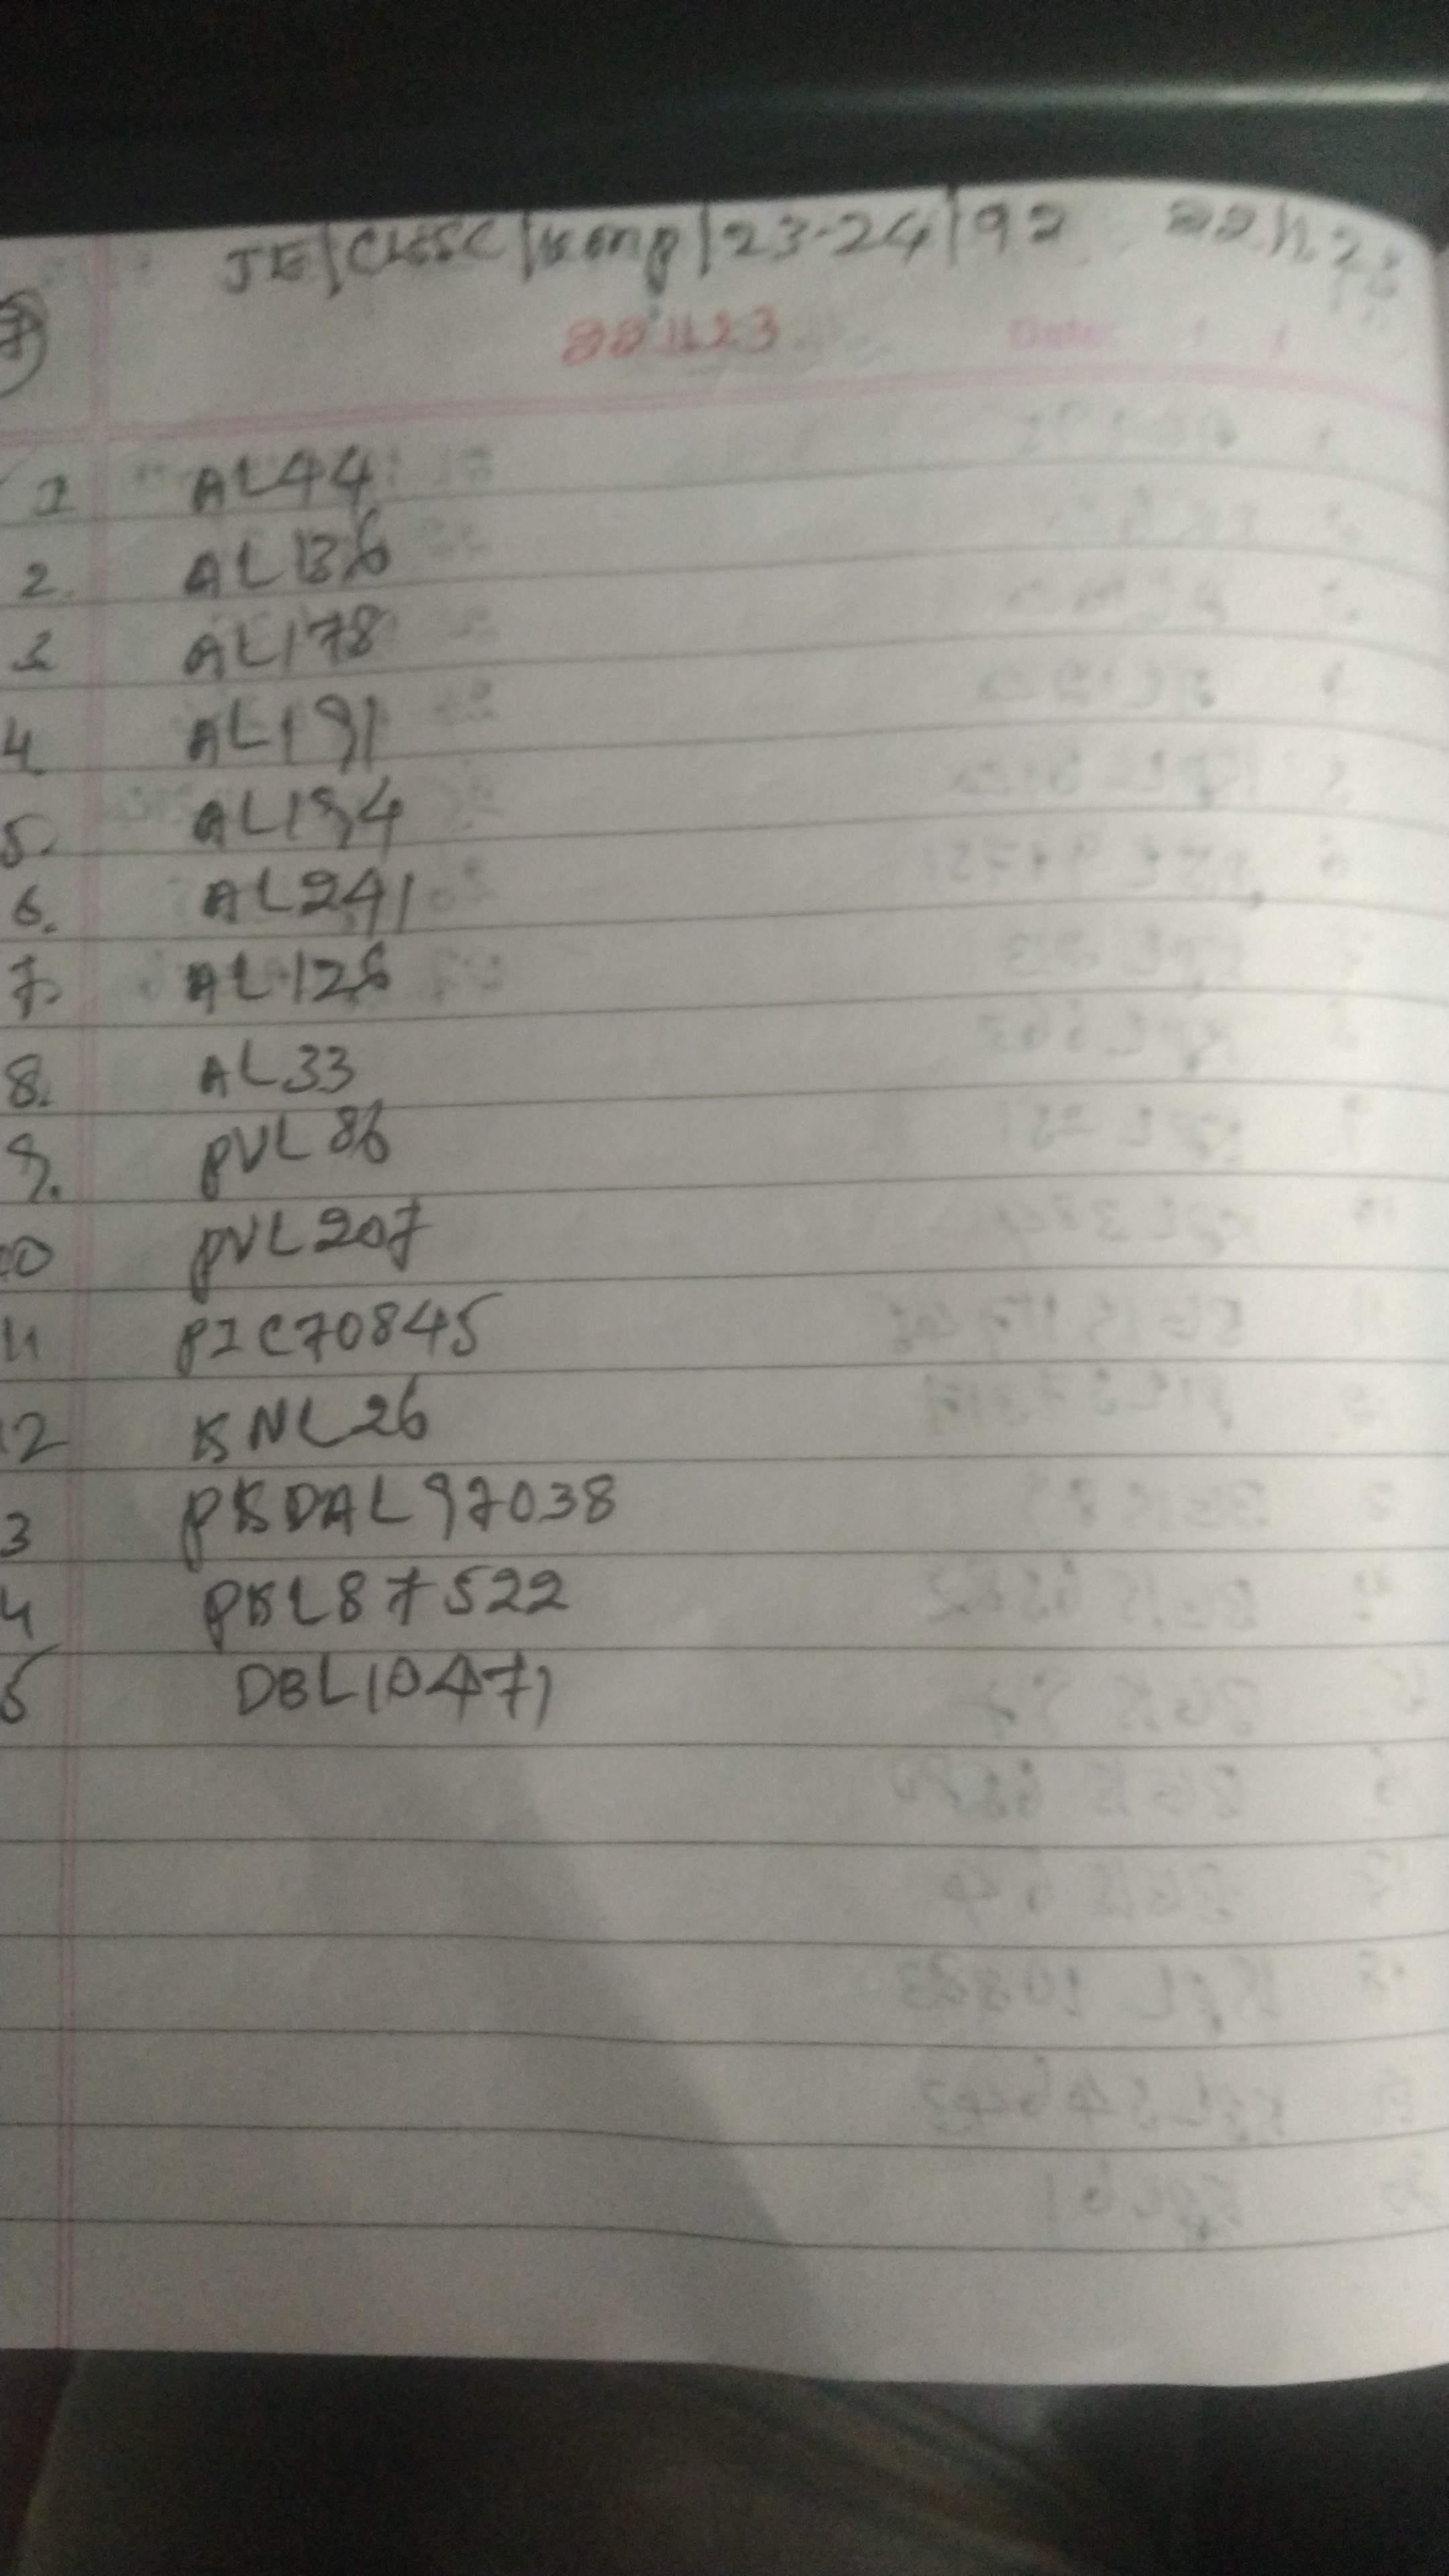 JE/CLESC/Kong/23-24/92 22.11.23
22.11.23
Date: / /
1 AL44
2. AL136
3 AL178
4 AL191
5. AL194
6. AL241
7. AL126
8. AL33
9. PVL86
10 PVL207
11 PIC70845
12 KNL26
3 PKDAL97038
4 PKL87522
5 DBL10471